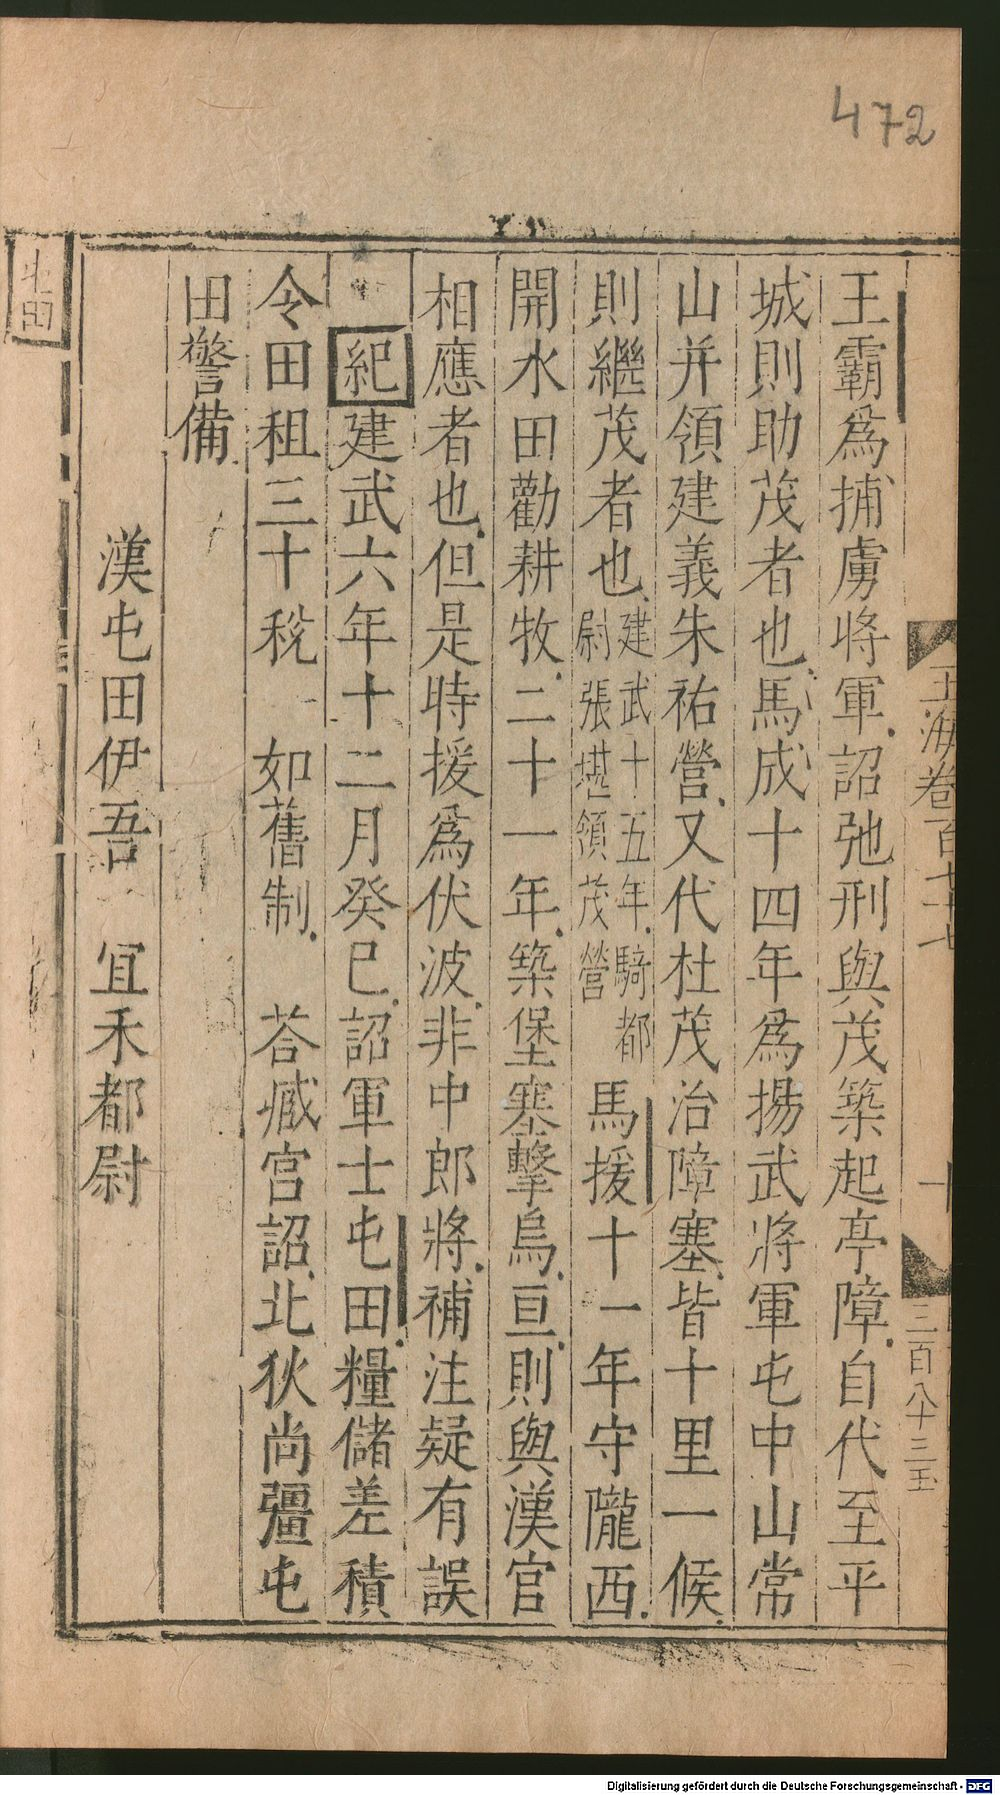 472
玉海卷百七十七
一
三百八十三玉
王霸爲捕虜將軍詔弛刑與茂築起亭障自代至平
城則助茂者也馬成十四年爲揚武將軍屯中山常
山并領建義朱祐營又代杜茂治障塞皆十里一候
則繼茂者也建武十五年騎都尉張堪領茂營馬援十一年守隴西
開水田勸耕牧二十一年築堡塞擊烏亘則與漢官
相應者也但是時援爲伏波非中郎將補注疑有誤
紀建武六年十二月癸巳詔軍士屯田糧儲差積
令田租三十稅 如舊制 荅臧宫詔北狄尚彊屯
田警備
漢屯田伊吾 宜禾都尉
屯田
Digitalisierung gefördert durch die Deutsche Forschungsgemeinschaft - DFG